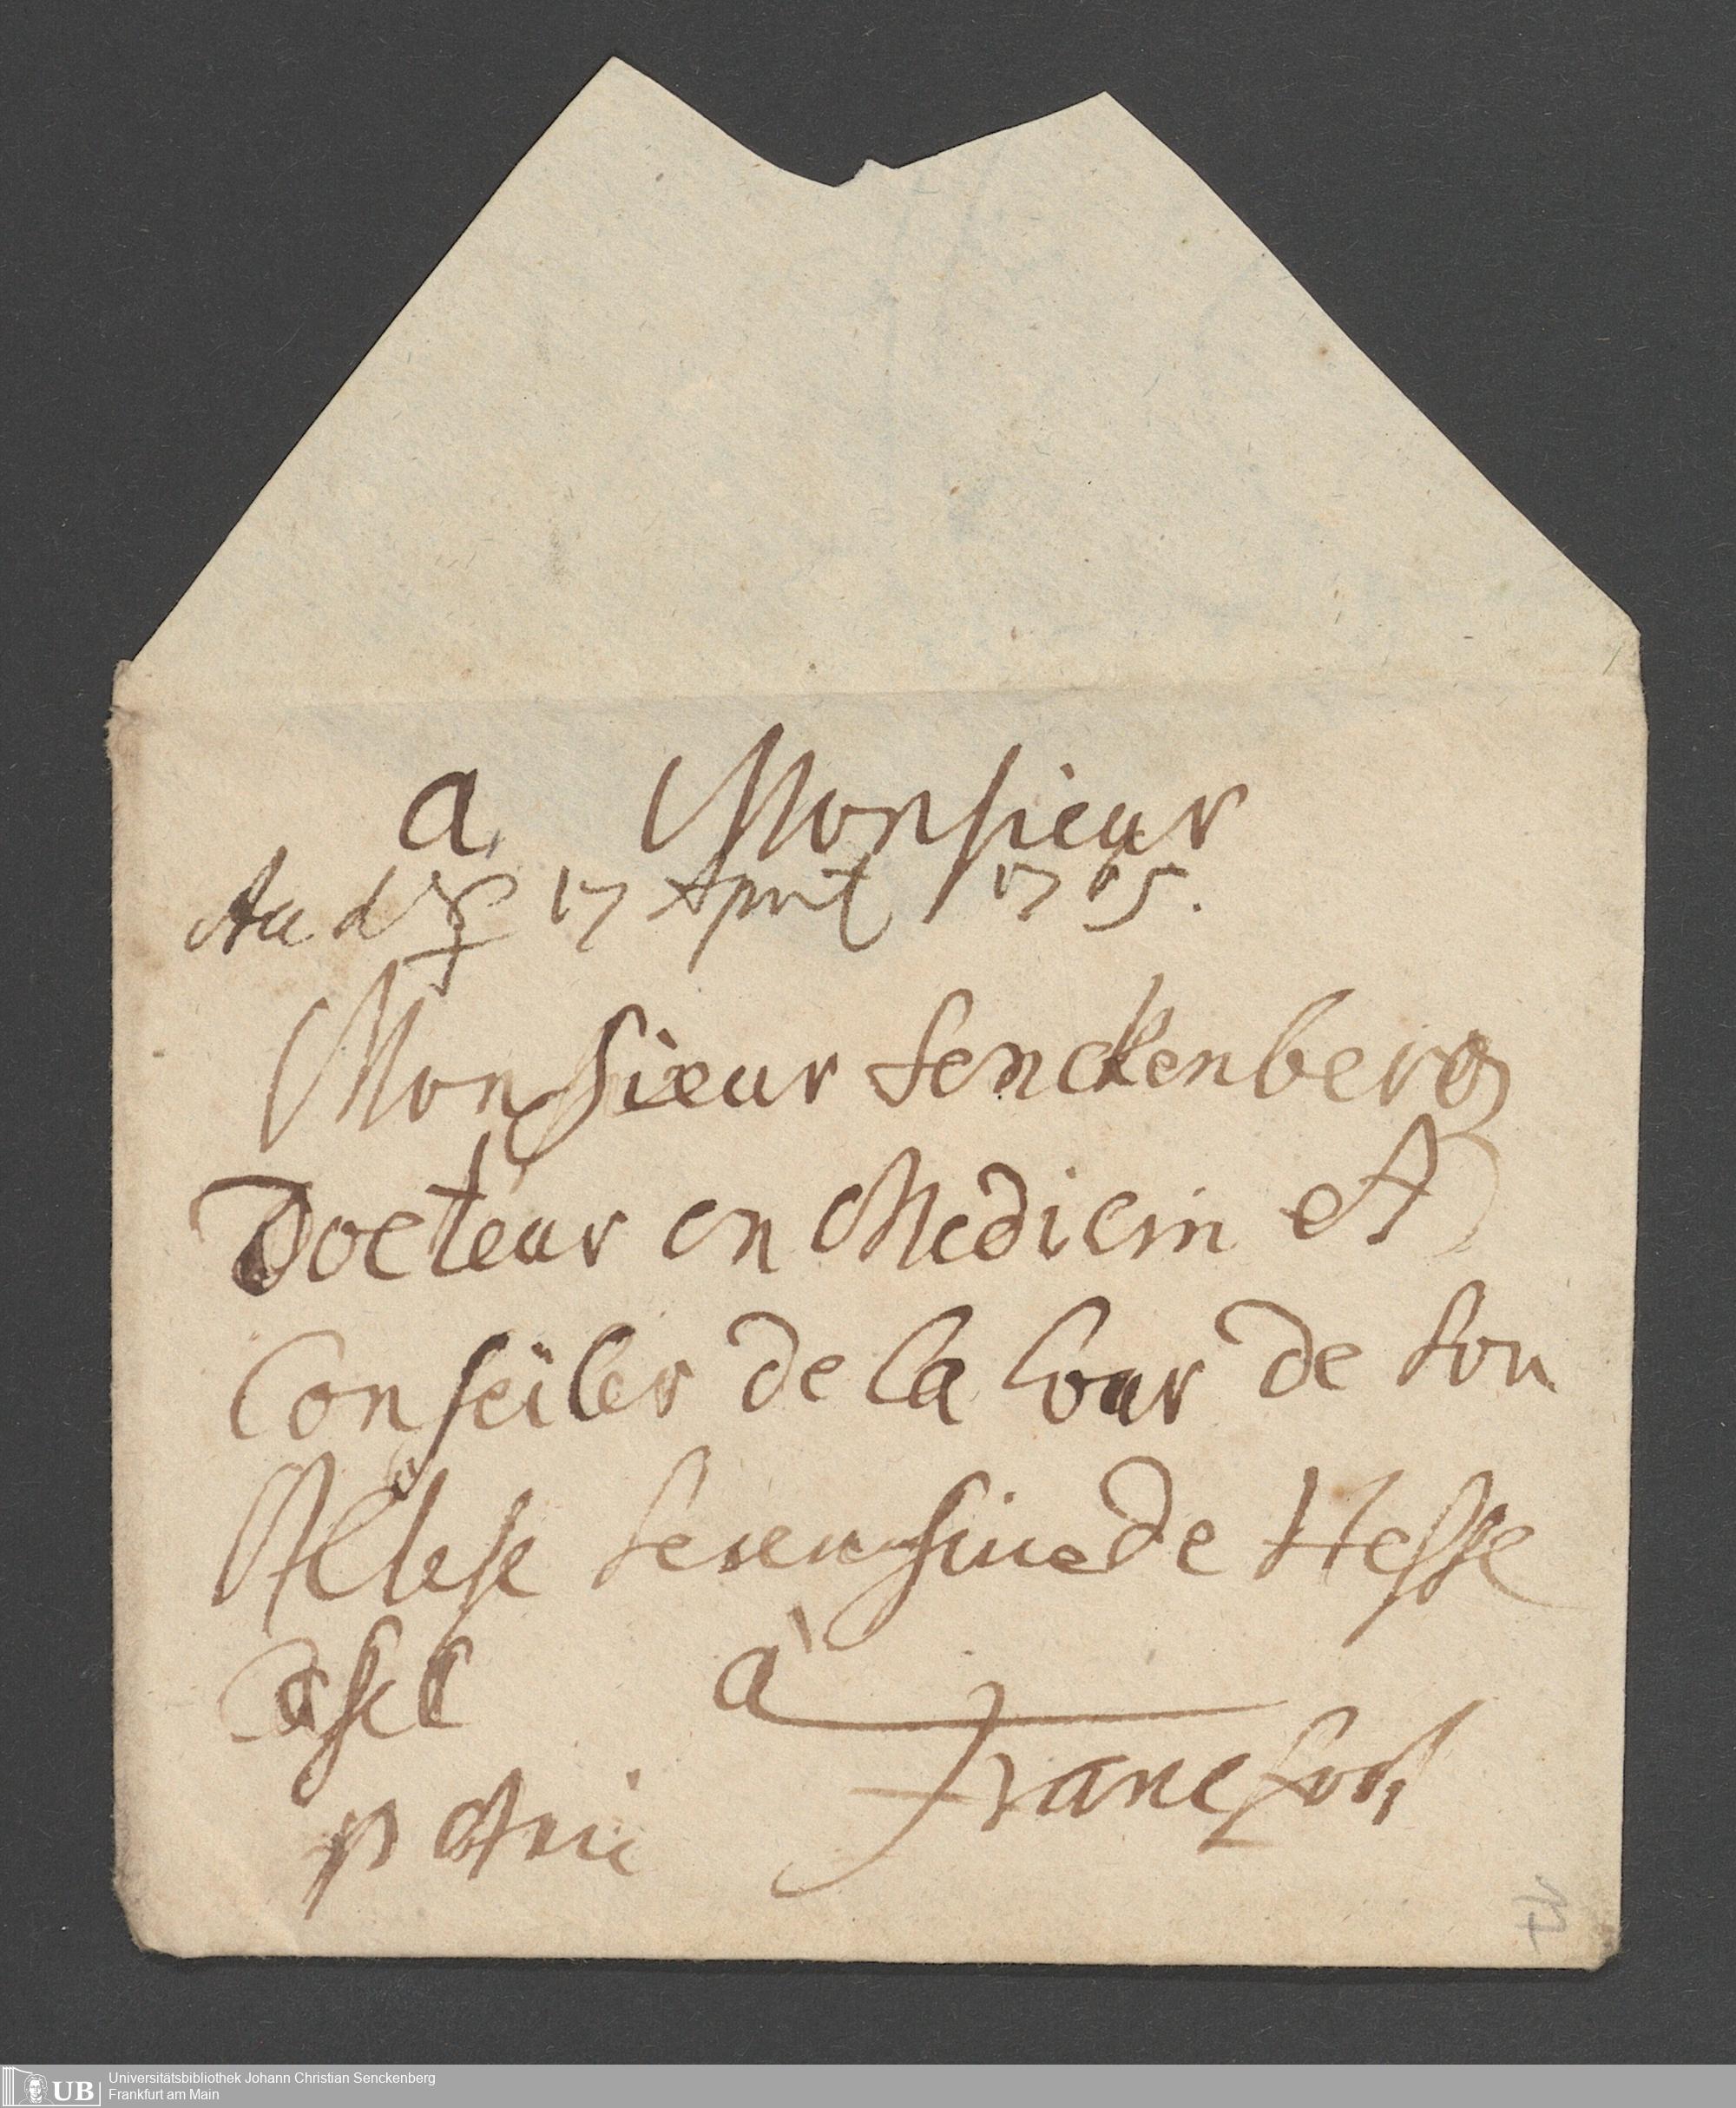 a Monsieur
Au d ☿ 17 April 1765.
Monsieur Senckenberg
Docteur en Medicin et
Conseiler de la Cour de Son
Altese Serenisime de Hesse
Casel à
Francfort
p
Universitätsbibliothek Johann Christian Senckenberg
Frankfurt am Main
UB